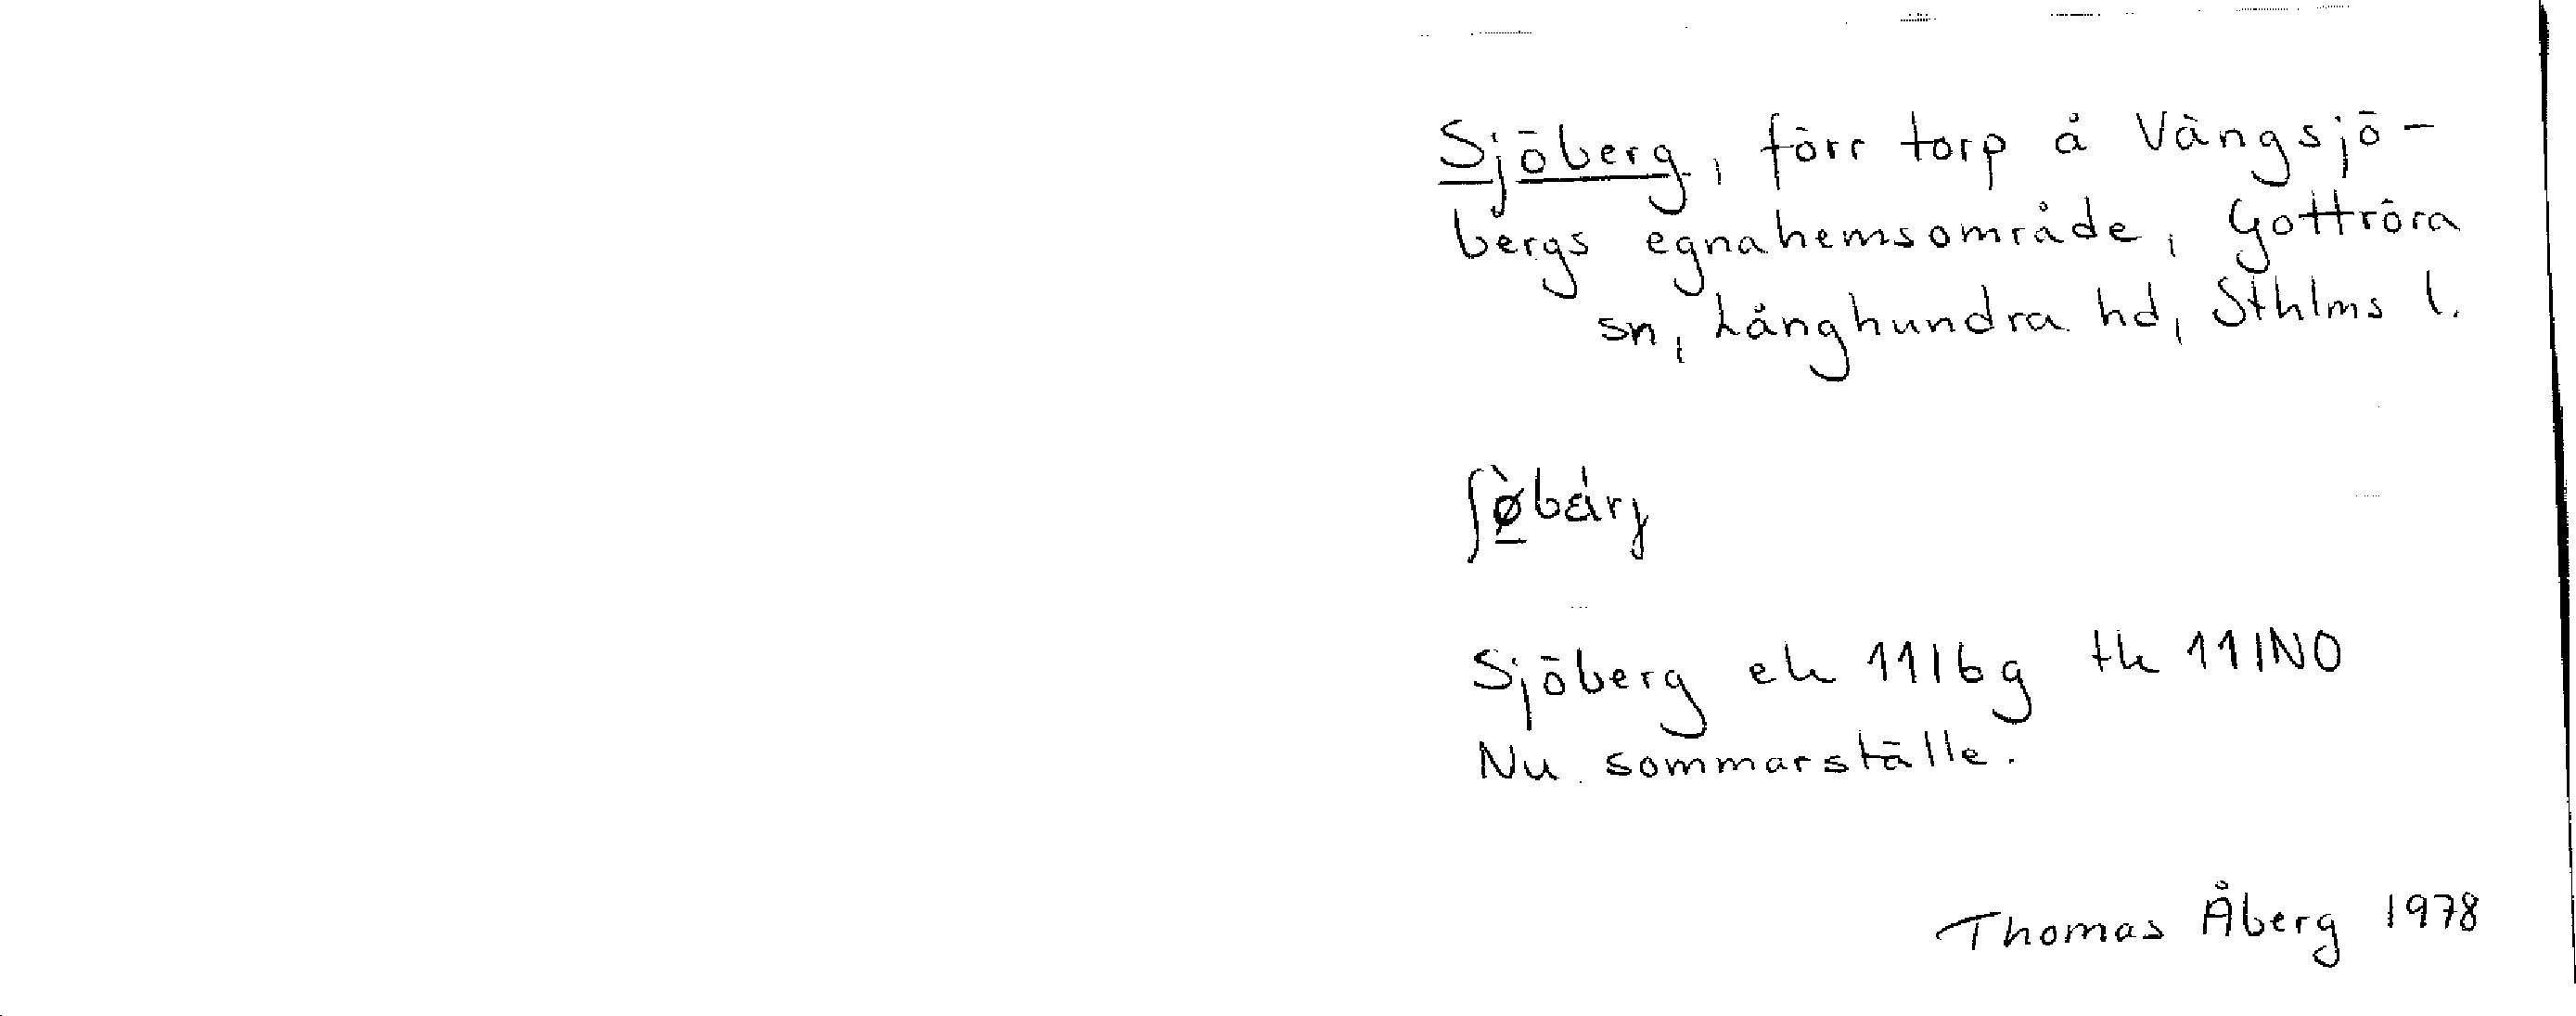 Sjöberg, förr torp å Vängsjö-
bergs egnahemsområde, Gottröra
sn, Långhundra hd, Sthlms l.
ʃø̀bærj
Sjöberg ek 11I6g tk 11INO
Nu sommarställe.
Thomas Åberg 1978